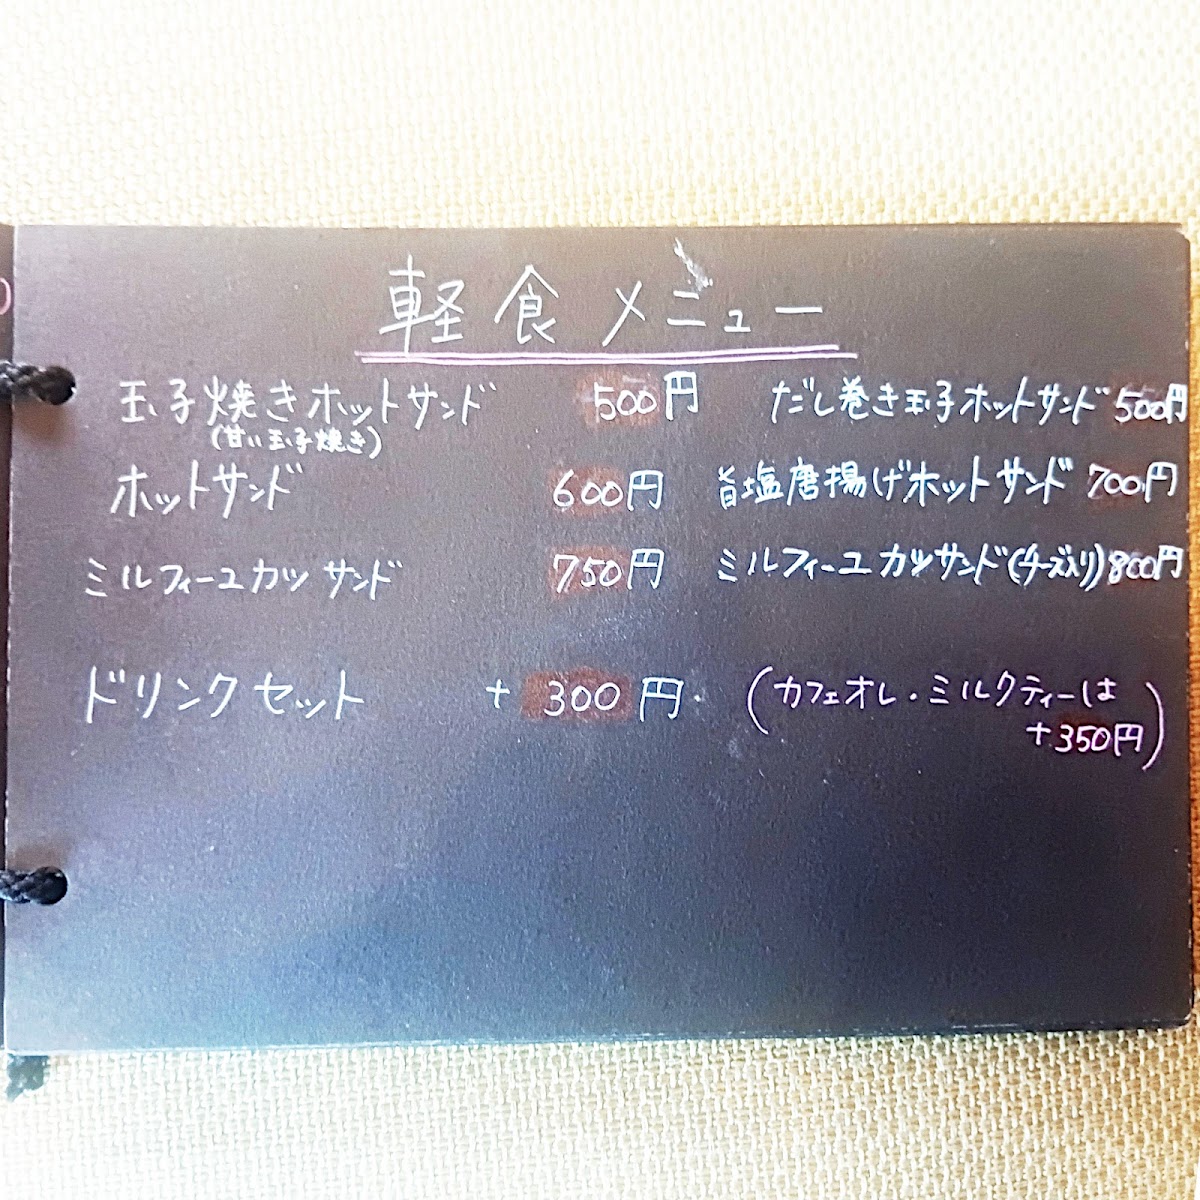 軽食メニュー
玉子焼きホットサンド 500円 だし巻き玉子ホットサンド 500円
(甘い玉子焼き)
ホットサンド 600円 旨塩唐揚げホットサンド 700円
ミルフィーユカツサンド 750円 ミルフィーユカツサンド(チーズ入り) 800円
ドリンクセット +300円 (カフェオレ・ミルクティーは
+350円)